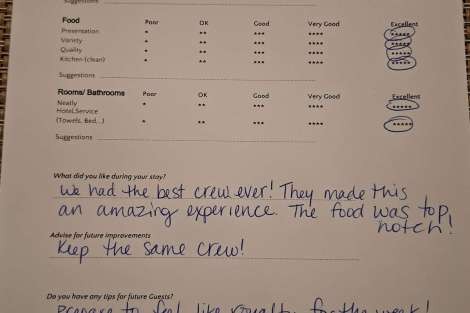 Suggestions
Food Poor OK Good Very Good Excellent
Presentation * ** *** **** *****
Variety * ** *** **** *****
Quality * ** *** **** *****
Kitchen (clean) * ** *** **** *****
Suggestions
Rooms/ Bathrooms Poor OK Good Very Good Excellent
Neatly * ** *** **** *****
Hotel Service
(Towels, Bed...) * ** *** **** *****
Suggestions
What did you like during your stay?
We had the best crew ever! They made this
an amazing experience. The food was top
notch!
Advise for future improvements
Keep the same crew!
Do you have any tips for future Guests?
Prepare to feel like royalty for the week!